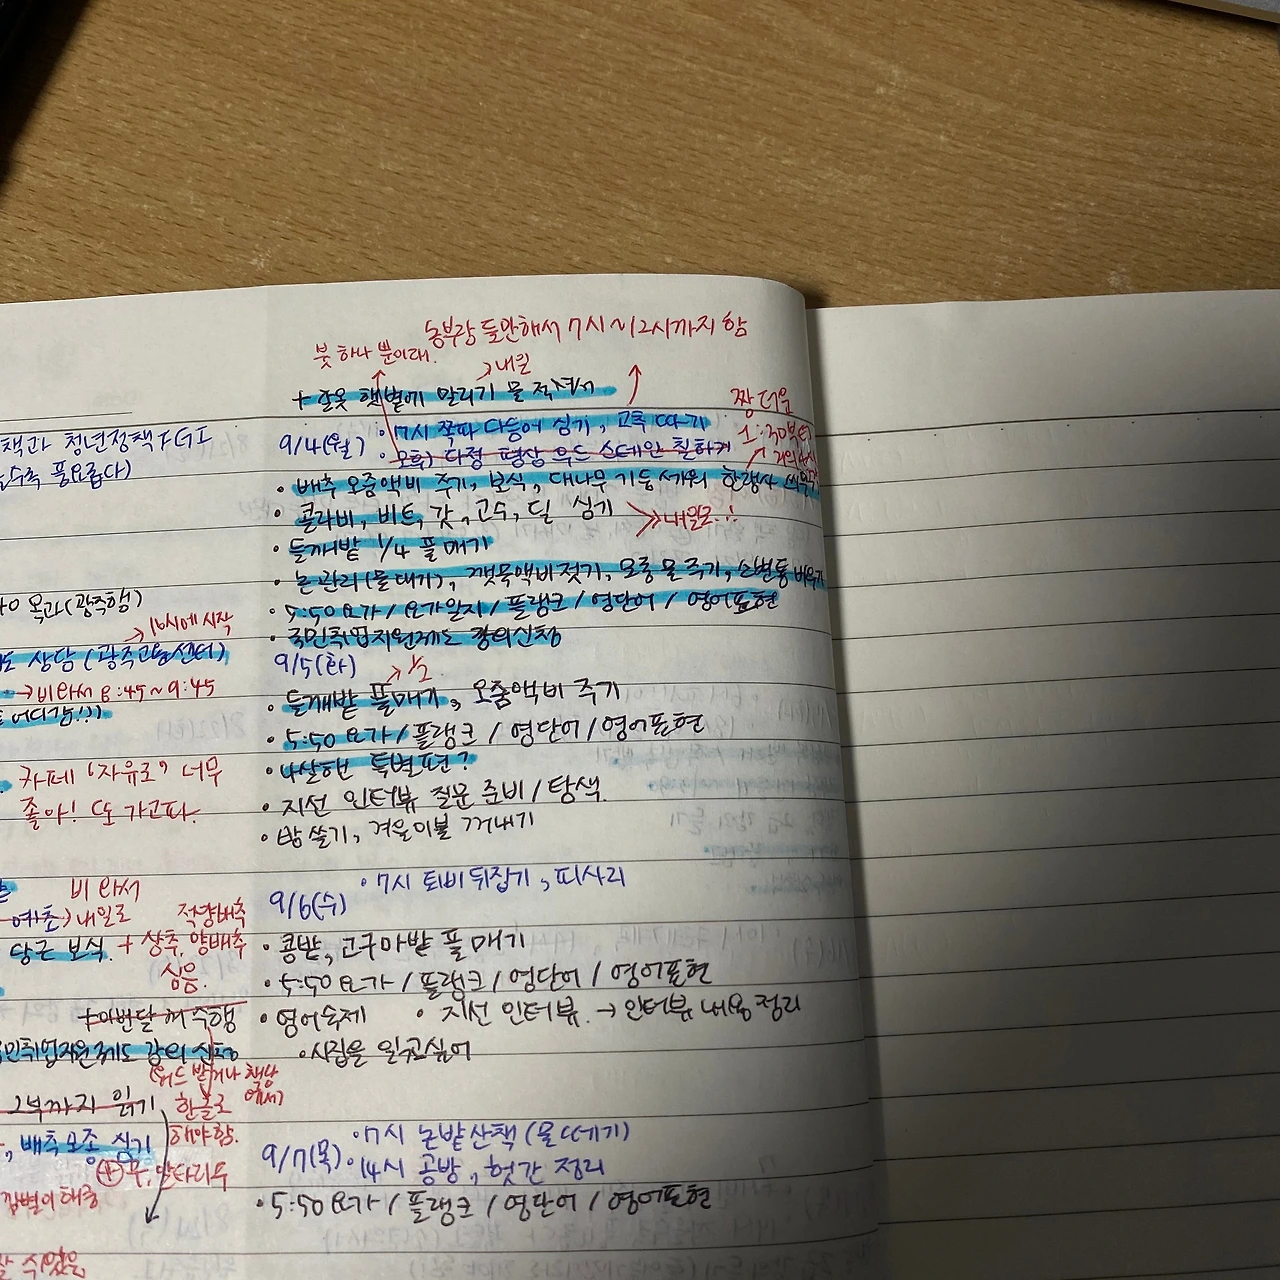 농부랑 둘만해서 7시~12시까지 함
붓 하나 뿐이래.
→내일
+ 잘옷 햇볕에 말리기 물 적셔서
짱 더움
9/4(월) • 7시 쪽파 다듬어 심기, 고추 따기
1:30부터
• 오후) 다정 평상 우드 스테인 칠하기
• 배추 오줌액비 주기, 보식, 대나무 기둥 세워 한랭사 씌우기
• 콜라비, 비트, 갓, 고수, 딜 심기 → 내일로..!
• 들깨밭 1/4 풀 매기
• 논 관리(물대기), 깻묵액비 젓기, 모종 물 주기, 소변통 비우기
• 5:50 요가 / 요가일지 / 플랭크 / 영단어 / 영어표현
• 국민취업지원제도 강의신청
9/5(화) → 1/2
• 들깨밭 풀매기, 오줌액비 주기
• 5:50 요가 / 플랭크 / 영단어 / 영어표현
• 나살핸 특별편?
• 지선 인터뷰 질문 준비 / 탐색
• 밤 쓸기, 겨울이불 꺼내기
• 7시 퇴비 뒤집기, 피사리
9/6(수)
• 콩밭, 고구마밭 풀 매기
• 5:50 요가 / 플랭크 / 영단어 / 영어표현
• 영어숙제 • 지선 인터뷰 → 인터뷰 내용 정리
• 시집을 읽고싶어
• 7시 논밭산책 (물떼기)
9/7(목) • 14시 공방, 헛간 정리
• 5:50 요가 / 플랭크 / 영단어 / 영어표현
책과 청년정책 FGI
풍요롭다)
목과(광주행)
→ 16시에 시작
상담 (광주고용센터)
→ 비 와서 8:45~9:45
어디감!))
카페 '자유로' 너무
좋아! 또 가고파.
비 와서
예초) 내일로 적양배추
당근 보식. + 상추, 양배추
심음.
+ 이번달
국민취업지원제도 강의 신청
2부까지 읽기 한글로
해야함.
, 배추모종 심기
⊕ 무, 알타리무
수 있었음